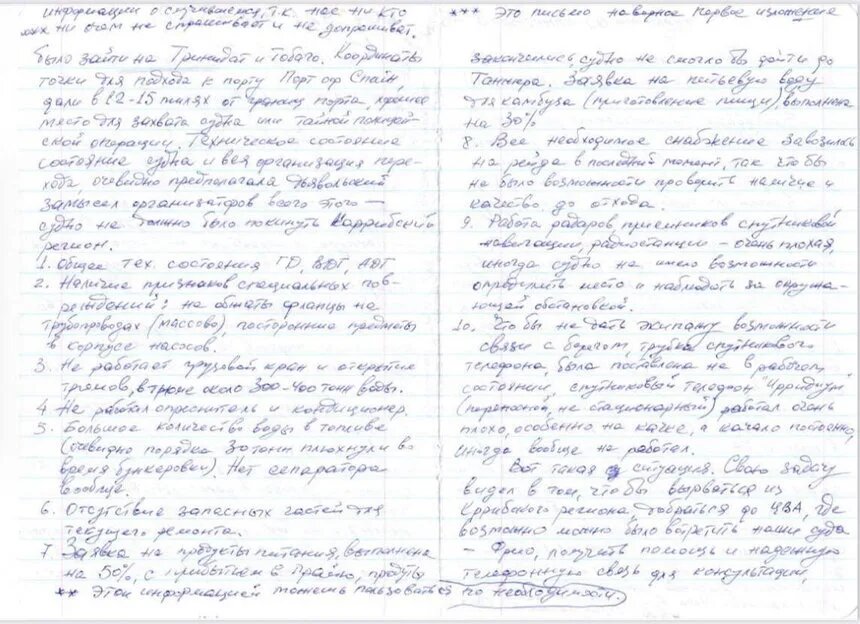 информации о случившемся, т.к. нас ни кто
ни о чем не спрашивает и не допрашивает.
было зайти на Тринидат и Тобаго. Координаты
точки для подхода к порту Порт оф Спайн,
дали в 12-15 милях от границ порта,
место для захвата судна или тайной полицей-
ской операции. Техническое состояние
состояние судна и вся организация пере-
хода, очевидно предполагала дьявольский
замысел организаторов всего этого —
судно не должно было покинуть Каррибский
регион.
1. Общее тех. состояния ГД, ВДГ, АДГ
2. Наличие признаков специальных пов-
реждений: не обжаты фланцы на
трубопроводах (массово), посторонние предметы
в корпусе насосов.
3. Не работает грузовой кран и открытие
трюмов, в трюме около 300-400 тонн воды.
4 Не работал опреснитель и кондиционер.
5. Большое количество воды в топливе
(очевидно порядка 30 тонн плюхнули во
время бункеровки). Нет сепаратора
вообще.
6. Отсутствие запасных частей для
текущего ремонта.
7. Заявка на продукты питания, выполнена
на 50%, с прибытием в Прайю, продукты
** Этой информацией можешь пользоваться по необходимости.
*** Это письмо наверное первое изложение
закончились, судно не смогло бы дойти до
Танжера. Заявка на питьевую воду
для камбуза (приготовление пищи) выполнена
на 30%
8. Все необходимое снабжение завозилось
на рейда в последний момент, так что бы
не было возможности проверить наличие и
качество до отхода.
9. Работа радаров, приемников спутниковой
навигации, радиостанции – очень плохая,
иногда судно не имело возможности
определить место и наблюдать за окружа-
ющей обстановкой.
10. Что бы не дать экипажу возможности
связи с берегом, трубка спутникового
телефона была поставлена не в рабочем
состоянии, спутниковый телефон "Ирридиум"
(переносной, не стационарный) работал очень
плохо, особенно на качке, а качало постоянно,
иногда вообще не работал.
Вот такая ситуация. Свою задачу
видел в том, что бы вырваться из
Каррибского региона, добраться до ЦВА, где
возможно можно было встретить наши суда
– Фрио, получить помощь и надежную
телефонную связь для консультации,